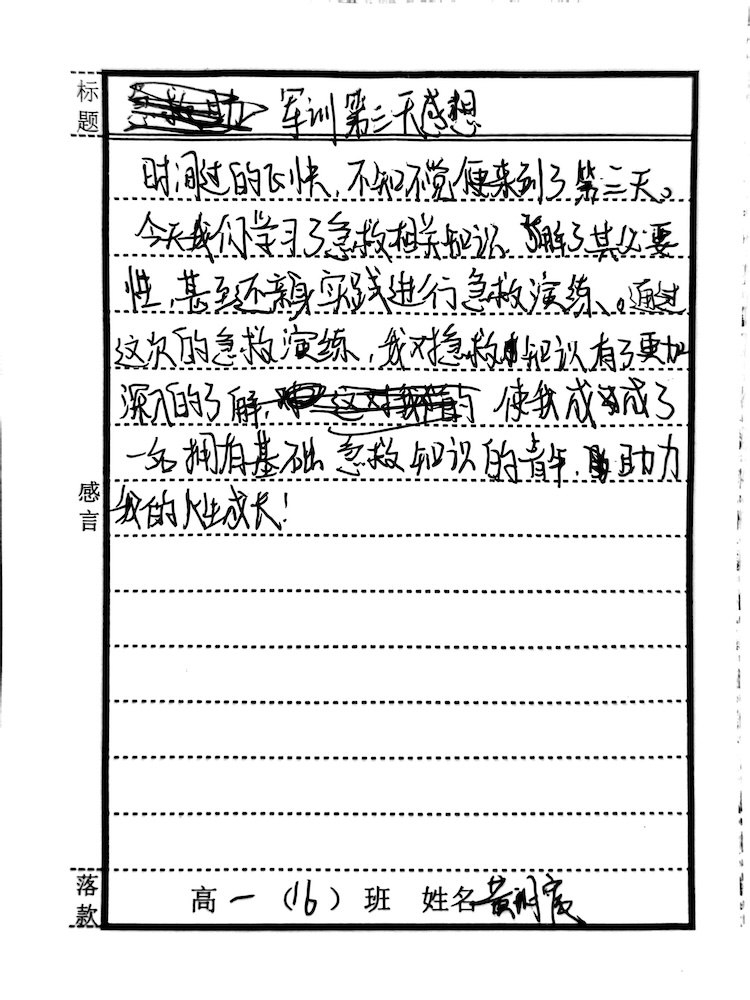 标题
军训第三天感想
时间过的飞快,不知不觉便来到了第三天。
今天我们学习了急救相关知识,了解了其必要
性,甚至还亲身实践进行急救演练、。通过
这次的急救演练,我对急救知识有了更加
深入的了解, 使我成为成了
一名拥有基础急救知识的青年,助力
我的人生成长!
感言
落款
高一(16)班 姓名黄